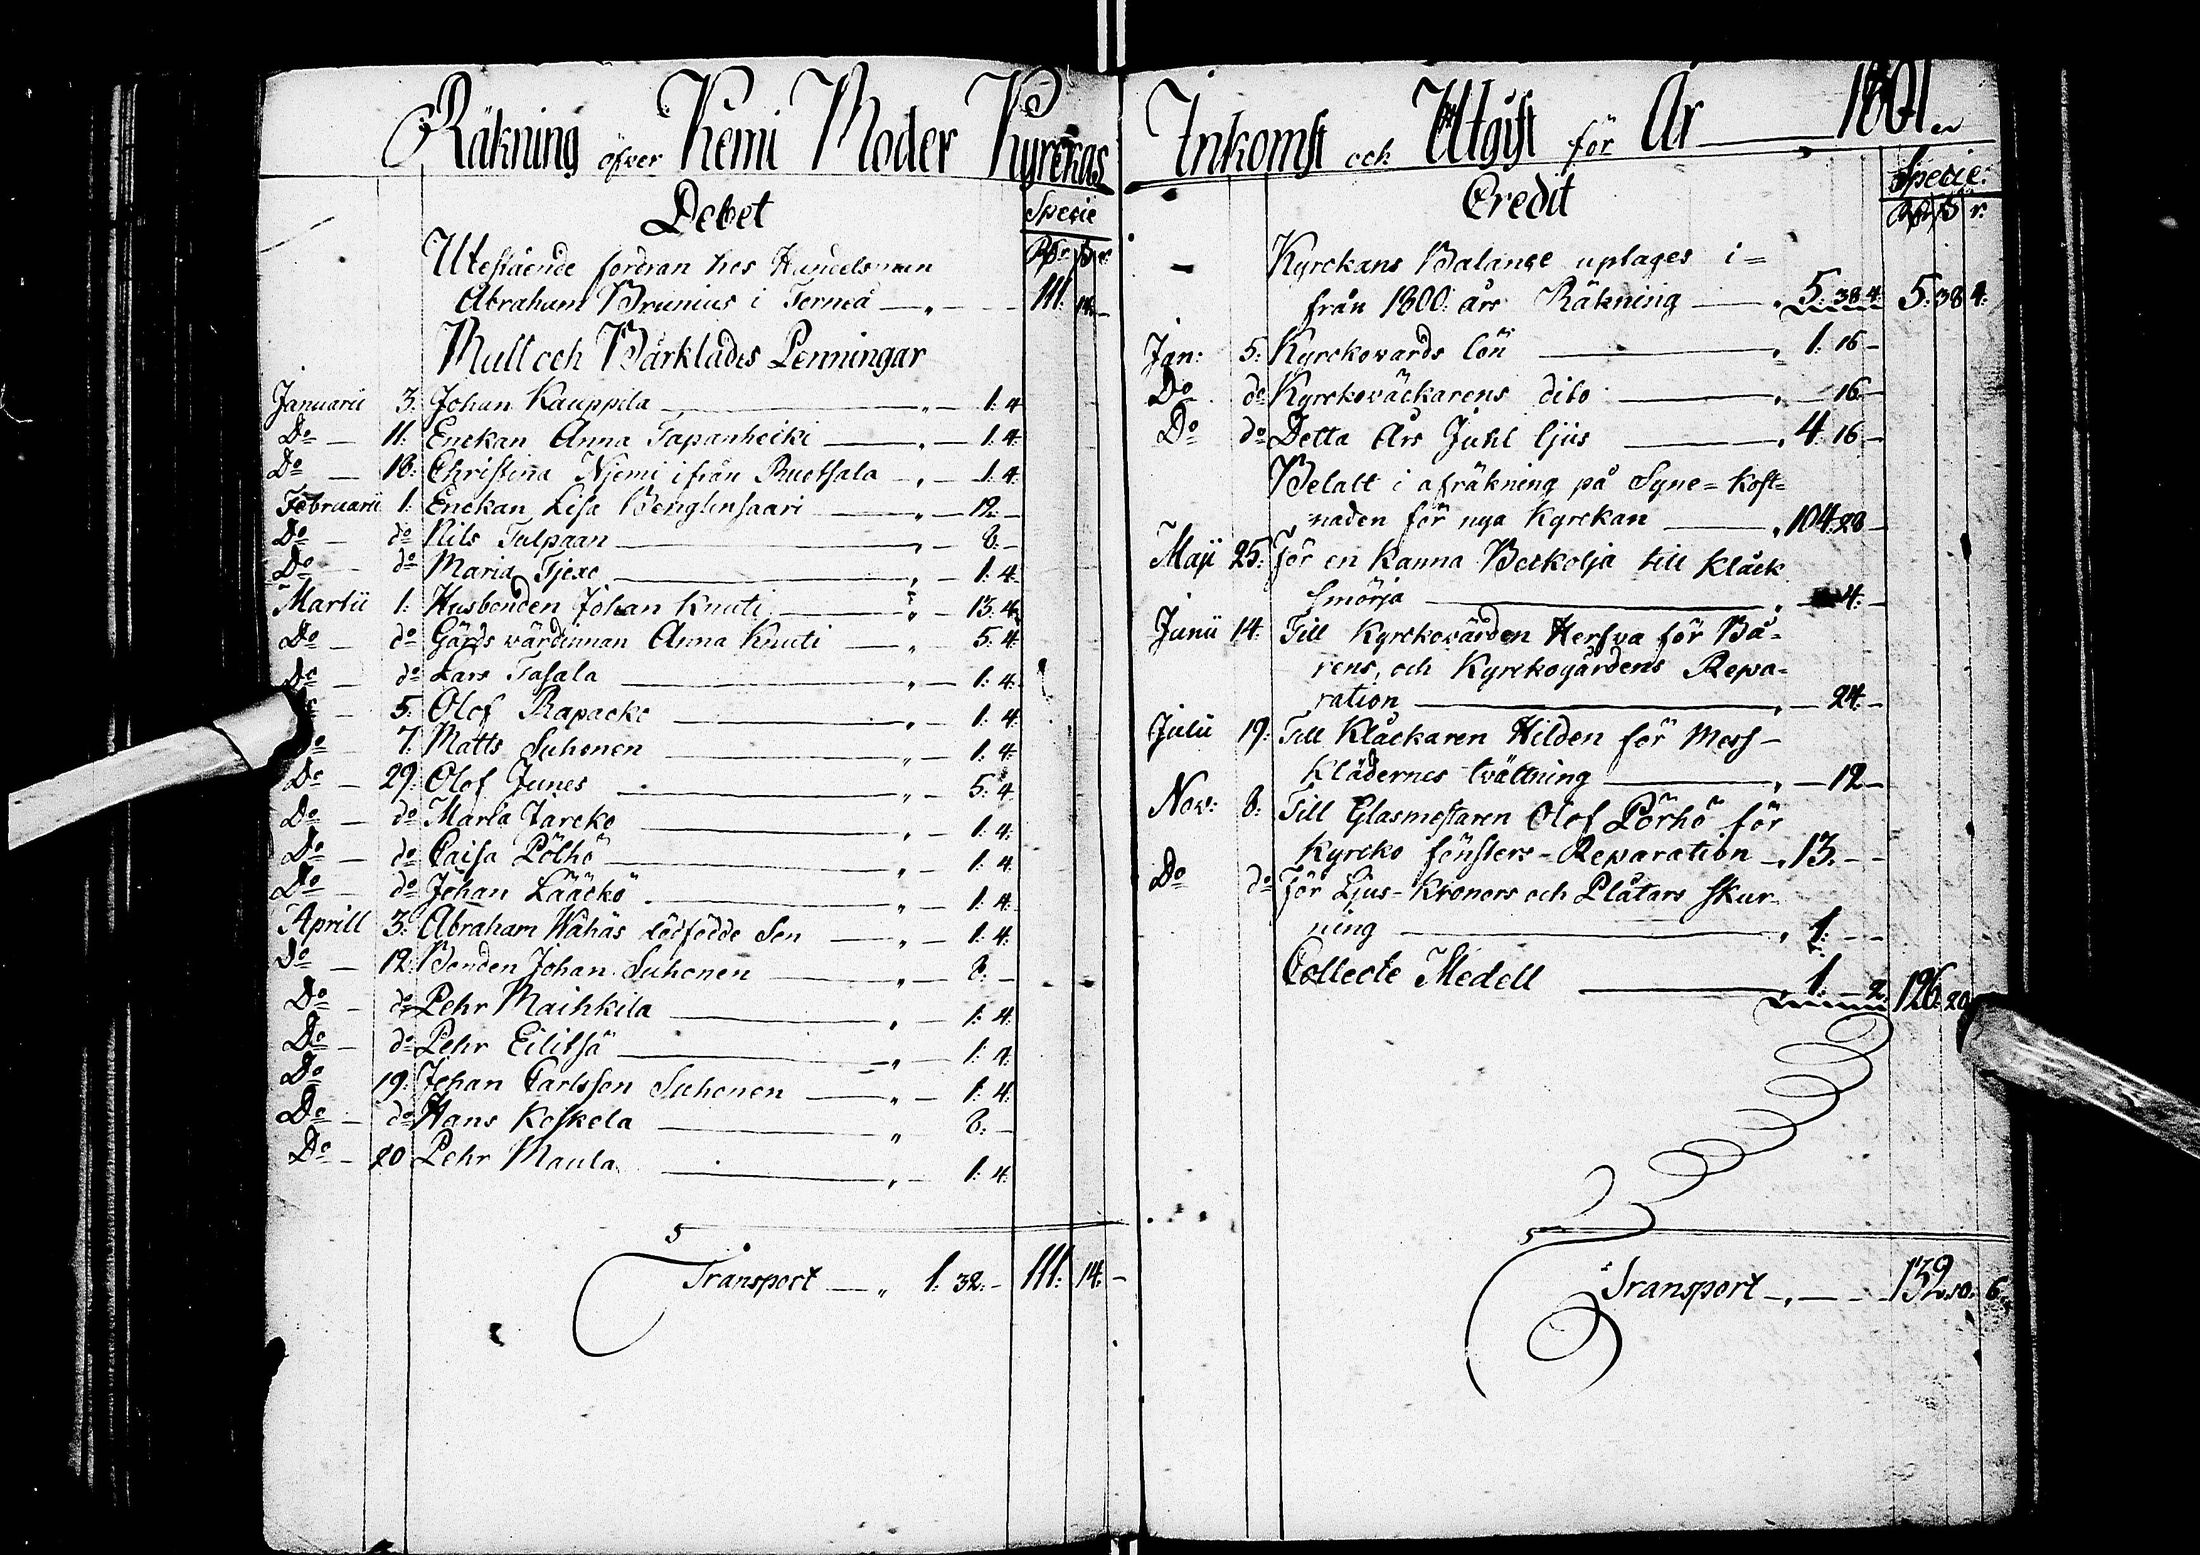 Räkning öfver Kemi Moder Kyrckas
Debet
Specie
Rdr ß r.
Utestående fordran hos Handelsman
Abraham Brunius i Torneå — „ — 111: 14: —
Mull och Bårklädes Penningar
Januarii 3: Johan Kauppila — „ — 1: 4
Do — 11: Enckan Anna Tapanheiki — „ — 1: 4:
Do — 18: Christina Njemi ifrån Ruotsala — „ — 1: 4:
Februarii 1: Enckan Lisa — „ — 12: —
Do — do Nils Talpaan — „ — 8: —
Do — do Maria — „ — 1: 4:
Martii 1: Husbonden Johan Knuti — „ — 13: 4:
Do — do Gårds wärdinnan Anna Knuti — „ 5: 4:
Do — do Lars Tasala — „ — 1: 4:
— 5: Olof Rapacko — „ — 1: 4
Do — 7: Matts Suhonen — „ — 1: 4:
Do — 29: Olof Junes — „ — 5: 4
Do — do Maria Jarcko — „ — 1: 4:
Do — do Caisa Pölhö — „ — 1: 4:
Do — do Johan Lääckö — „ — 1: 4:
Aprill 3: Abraham Wähäs dödfödde Son — „ — 1: 4:
Do — 12: Bonden Johan Suhonen — „ — 8: —
Do — do Pehr Maihkila — „ — 1: 4:
Do — do Pehr Eilitsä — „ — 1: 4:
Do 19: Johan Carlsson Suhonen — „ — 1: 4:
Do — do Hans Koskela — „ 8: —
Do — 20 Pehr Maula — „ — 1: 4:
Transport — „ 1: 32: — 111: 14: —
Inkomst och Utgift för År — 1801
Credit
Specie:
Rdr ß r:
Kyrckans Balance uptages i=
från 1800: års Räkning — „ 5: 38 4: 5: 38 4:
Jan: 5: Kyrckovards lön — „ 1: 16 —
Do do Kyrckoväckarens dito — „ — 16 —
Do do Detta Års Juhl ljus — „ 4: 16 —
Betalt i afräkning på Syne=kost=
naden för nya Kyrckan — „ 104: 28 —
Maji 25: För en Kanna Beckolja till klåck
smörja — „ — 4: —
Junii 14: Till Kyrckovärden Herfva för Bå-
rens, och Kyrckogårdens Repa-
ration — „ — 24: —
Julii 19: Till Klåckaren Hilden för Mess-
klädernes tvättning — „ — 12 —
Nov: 8: Till Glasmestaren Olof Pörhö för
Kyrcko fönsters-Reparation — „ 13. — —
Do do För Ljus-Kronors och Plåtars skur-
ning — „ 1: — —
Collecte Medell — „ 1: — 2: 126: 20
Transport — „ — 132 10: 6: